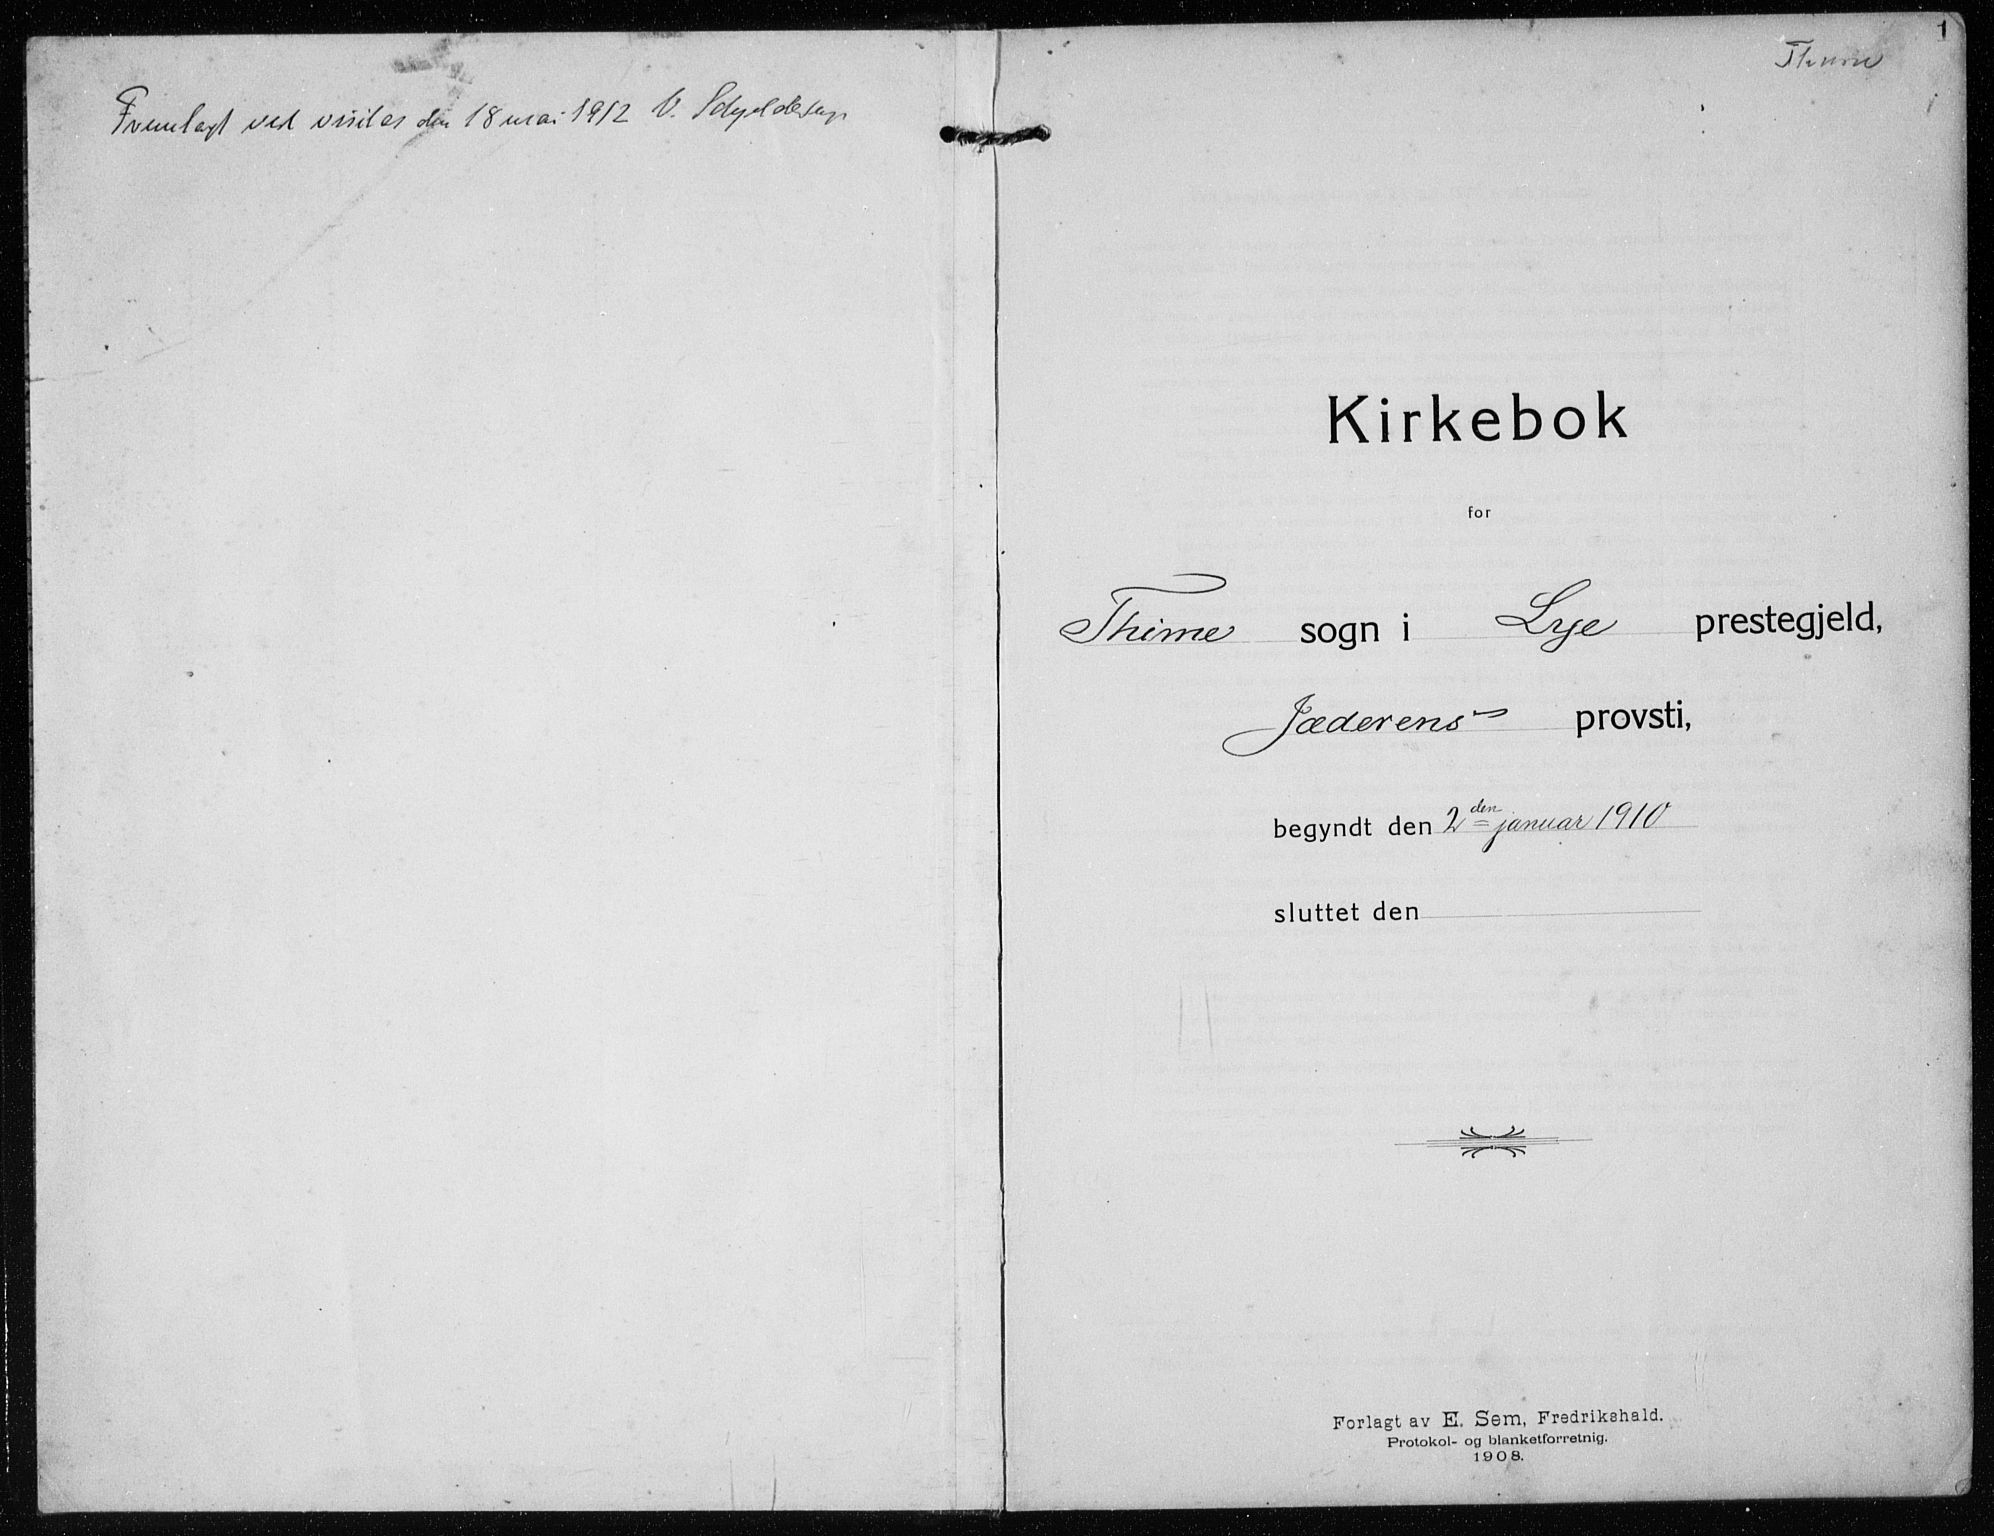 Fremlagt ved visitas den 18 mai 1912 V. Schjelderup
1
Thime
Kirkebok
for
Thime sogn i Lye prestegjeld,
Jæderens provsti,
begyndt den 2den januar 1910
sluttet den
Forlagt av E. Sem, Fredrikshald.
Protokol- og blanketforretnig.
1908.